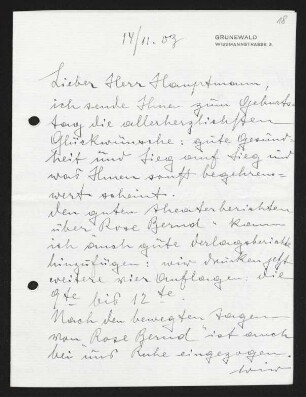 18
GRUNEWALD
WISSMANNSTRASSE 3.
14/11. 03
Lieber Herr Hauptmann,
ich sende Ihnen zum Geburts-
tag die allerherzlichsten
Glückwünsche: gute Gesund-
heit und Sieg auf Sieg und
was Ihnen sonst begehrens-
wert scheint.
Den guten Theaterberichten
über "Rose Bernd" kann
ich auch gute Verlagsberichte
hinzufügen: wir drucken jetzt
weitere vier Auflagen, die
9te bis 12te.
Nach den bewegten Tagen
von "Rose Bernd" ist auch
bei uns Ruhe eingezogen.
Wir